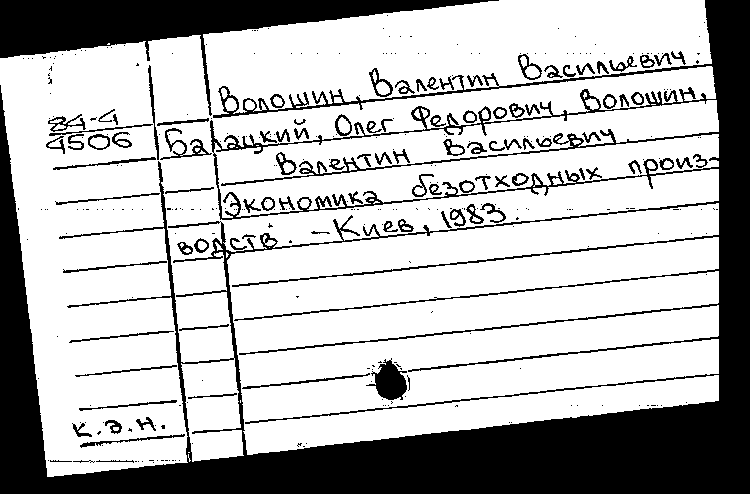 Волошин, Валентин Васильевич.
84-4
4506
Балацкий, Олег Федорович, Волошин,
Валентин Васильевич.
Экономика безотходных произ-
водств. - Киев, 1983.
к.э.н.